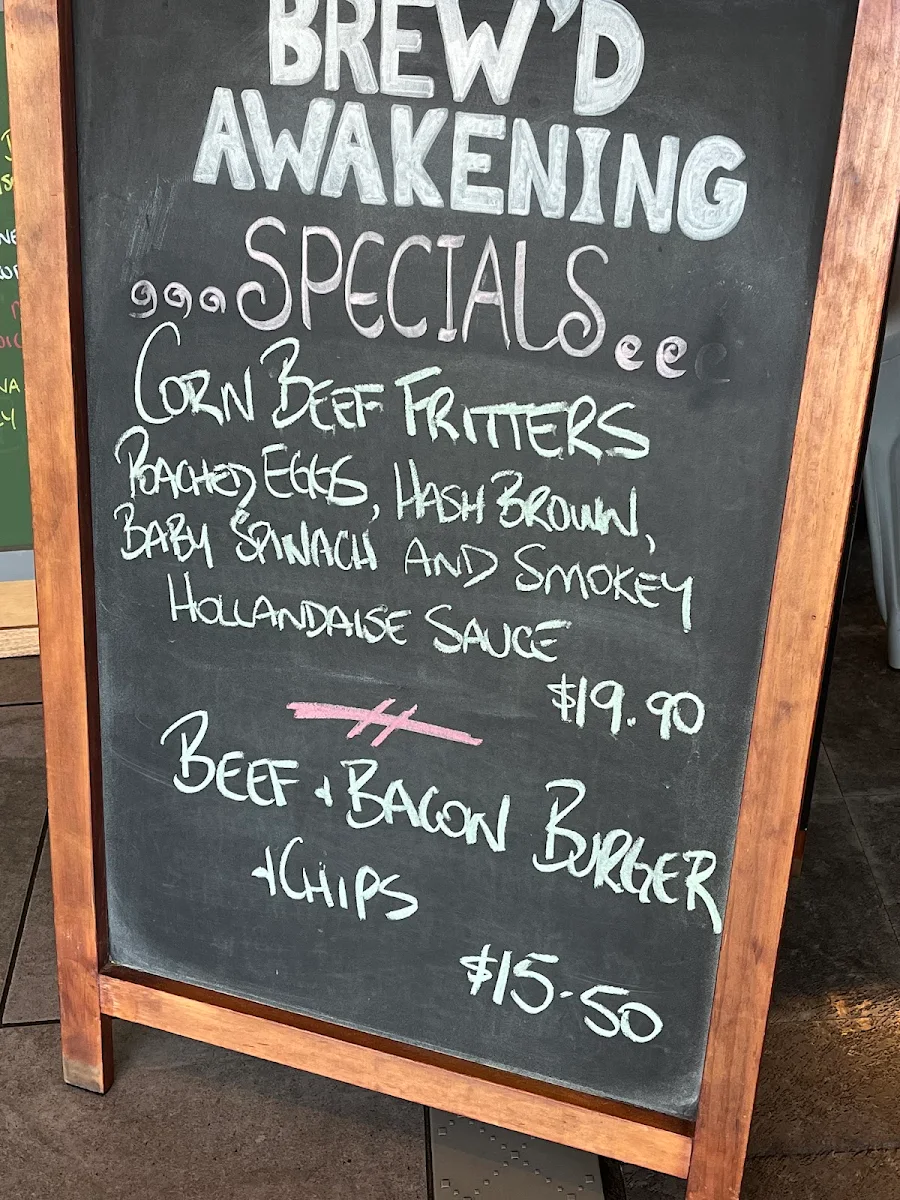 BREW'D
AWAKENING
SPECIALS
CORN BEEF FRITTERS
POACHED EGGS, HASH BROWN,
BABY SPINACH AND SMOKEY
HOLLANDAISE SAUCE
$19.90
BEEF + BACON BURGER
+ CHIPS
$15.50